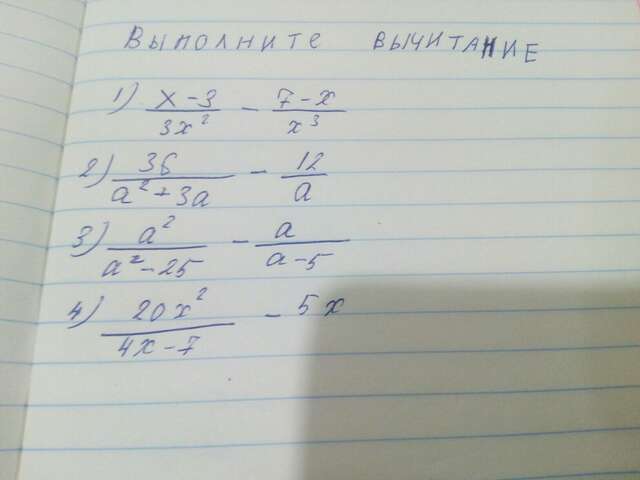 Выполните вычитание
1) (x-3)/(3x²) - (7-x)/(x³)
2) 36/(a²+3a) - 12/a
3) a²/(a²-25) - a/(a-5)
4) 20x²/(4x-7) - 5x